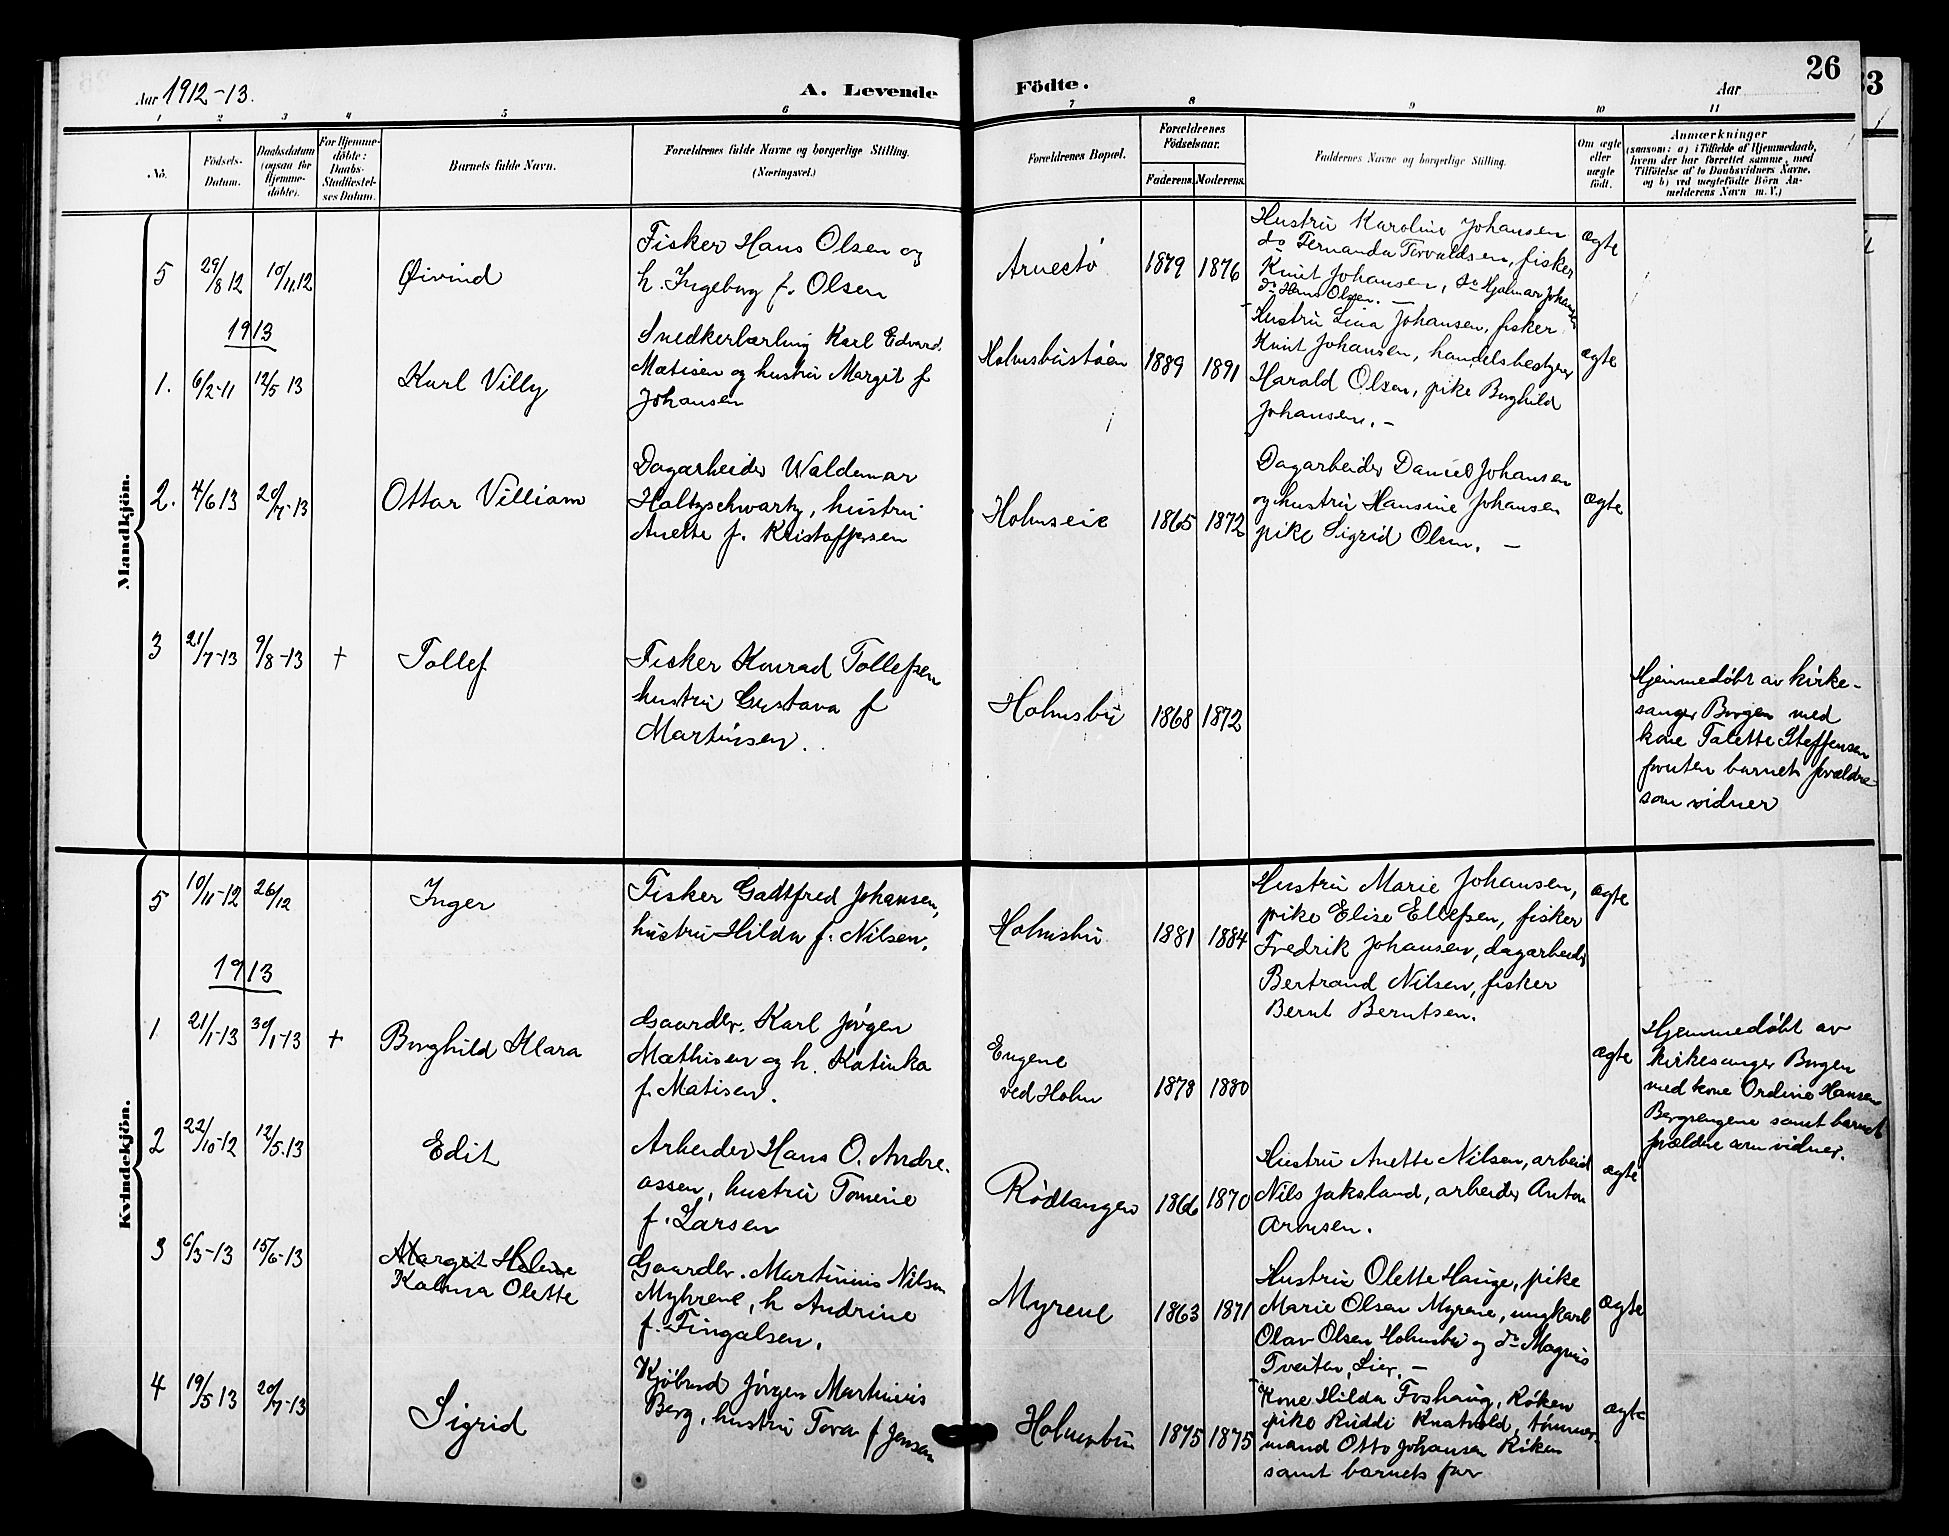 Aar 1912-13.
A. Levende Födte.
26
Aar
1 2 3 4 5 6 7 8 9 10 11
No.
Födsels-
Datum.
Daabsdatum
(ogsaa for
Hjemme-
döbte).
For Hjemme-
döbte:
Daabs-
Stadfæstel-
ses Datum.
Barnets fulde Navn.
Forældrenes fulde Navne og borgerlige Stilling.
(Næringsvei.)
Forældrenes Bopæl.
Forældrenes
Födselsaar.
Faderens. Moderens.
Faddernes Navne og borgerlige Stilling.
Om ægte
eller
uægte
födt.
Anmærkninger
(saasom: a) i Tilfælde af Hjemmedaab,
hvem der har forrettet samme, med
Tilföielse af to Daabsvidners Navne,
og b) ved uægtefödte Börn An-
melderens Navn m. V.)
Mandkjön.
5 29/8 12 10/11 12 Øivind
Fisker Hans Olsen og
h. Ingeborg f. Olsen
Arnestø 1879 1876
Hustru Karoline Johansen
do Fernanda Torvaldsen, fisker
Knut Johansen, do Hjalmar Johansen
do Hans Olsen. -
ægte
1913
1. 6/2-11 12/5 13 Karl Villy
Snedkerlærling Karl Edvard
Matisen og hustru Margit f
Johansen
Holmsbustøen 1889 1891
Hustru Lina Johansen, fisker
Knut Johansen, handelsbestyrer
Harald Olsen, pike Borghild
Johansen. -
ægte
2. 4/6 13 20/7-13 Ottar Villiam
Dagarbeider Waldemar
Holtzschwartz, hustru
Anette f. Kristoffersen
Holmseie 1865 1872
Dagarbeider Daniel Johansen
og hustru Hansine Johansen
pike Sigrid Olsen. -
ægte
3 21/7-13 9/8-13 + Tollef
Fisker Konrad Tollefsen
hustru Gustava f
Martinsen.
Holmsbu 1868 1872
Hjemmedøbt av kirke-
sanger Borgen med
kone Talette Steffensen
foruten barnets forældre
som vidner
Kvindekjön.
5 10/11-12 26/12 Inger
Fisker Gadtfred Johansen,
hustru Hilda f. Nilsen.
Holmsbu 1881 1884
Hustru Marie Johansen,
pike Elise Ellefsen, fisker
Fredrik Johansen, dagarbeider
Bertrand Nilsen, fisker
Bernt Berntsen.
ægte
1913
1 21/1-13 30/1-13 + Borghild Klara
Gaardbr. Karl Jørgen
Mathisen og h. Katinka
f. Matisen.
Engene
ved Holm 1878 1880
ægte
Hjemmedøbt av
kirkesanger Borgen
med kone Ordine Hansen
Bergsengene samt barnets
forældre som vidner.
2 22/10-12 12/5.13 Edit
Arbeider Hans O. Andre-
assen, hustru Tomine
f. Larsen
Rödtangen 1866 1870
Hustru Anette Nilsen, arbeid
Nils Jaksland, arbeider Anton
Arnesen.
ægte
3 6/3-13 15/6-13 Margit Helene
Kalma Olette
Gaardbr. Martinius Nilsen
Myhrene, h Andrine
f. Fingalsen.
Myrene 1863 1871
Hustru Olette Hauge, pike
Marie Olsen Myrene, ungkarl
Olav Olsen Holmsbu og do Magnus
Tveiten, Lier. -
ægte
4 19/5 13 20/7-13 Sigrid
Kjøbmd Jørgen Martinius
Berg, hustru Tora f Jensen
Holmsbu 1875 1875
Kone Hilda Foshaug, Røken
pike Ruddi Knatvold, tømmer-
mand Otto Johansen Røken
samt barnets far
ægte